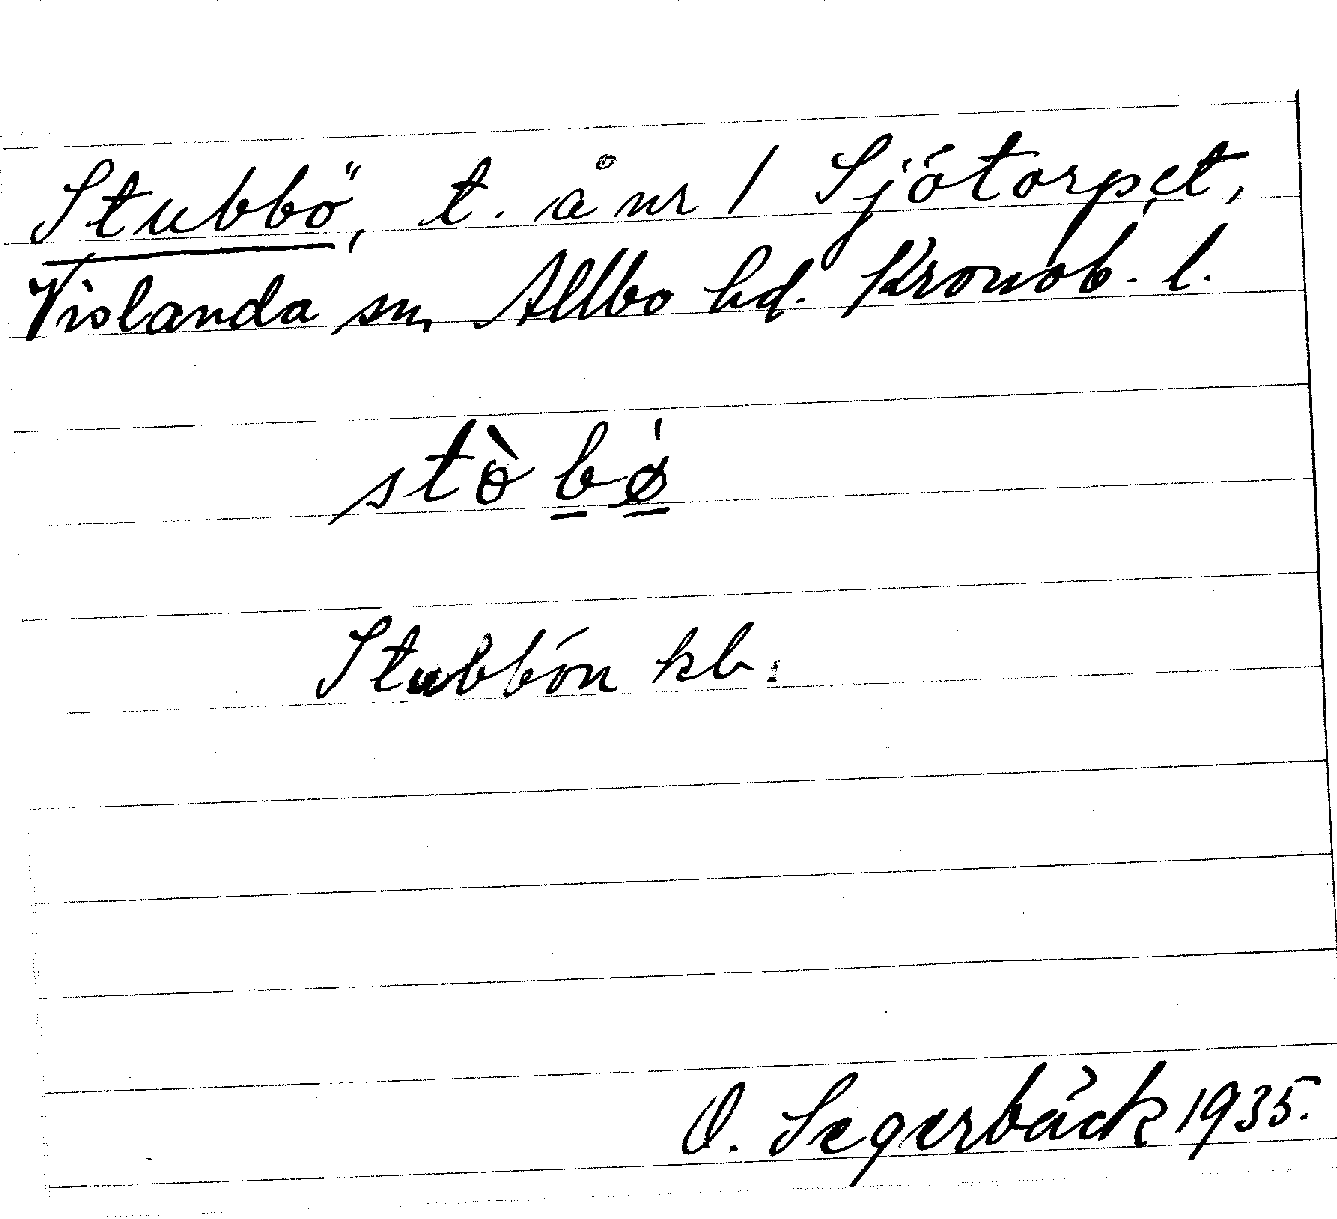 Stubbö, t. å nr 1 Sjötorpet,
Vislanda sn, Allbo hd. Kronob. l.
stòbø̀
Stubbön kb.
O. Segerbäck 1935.